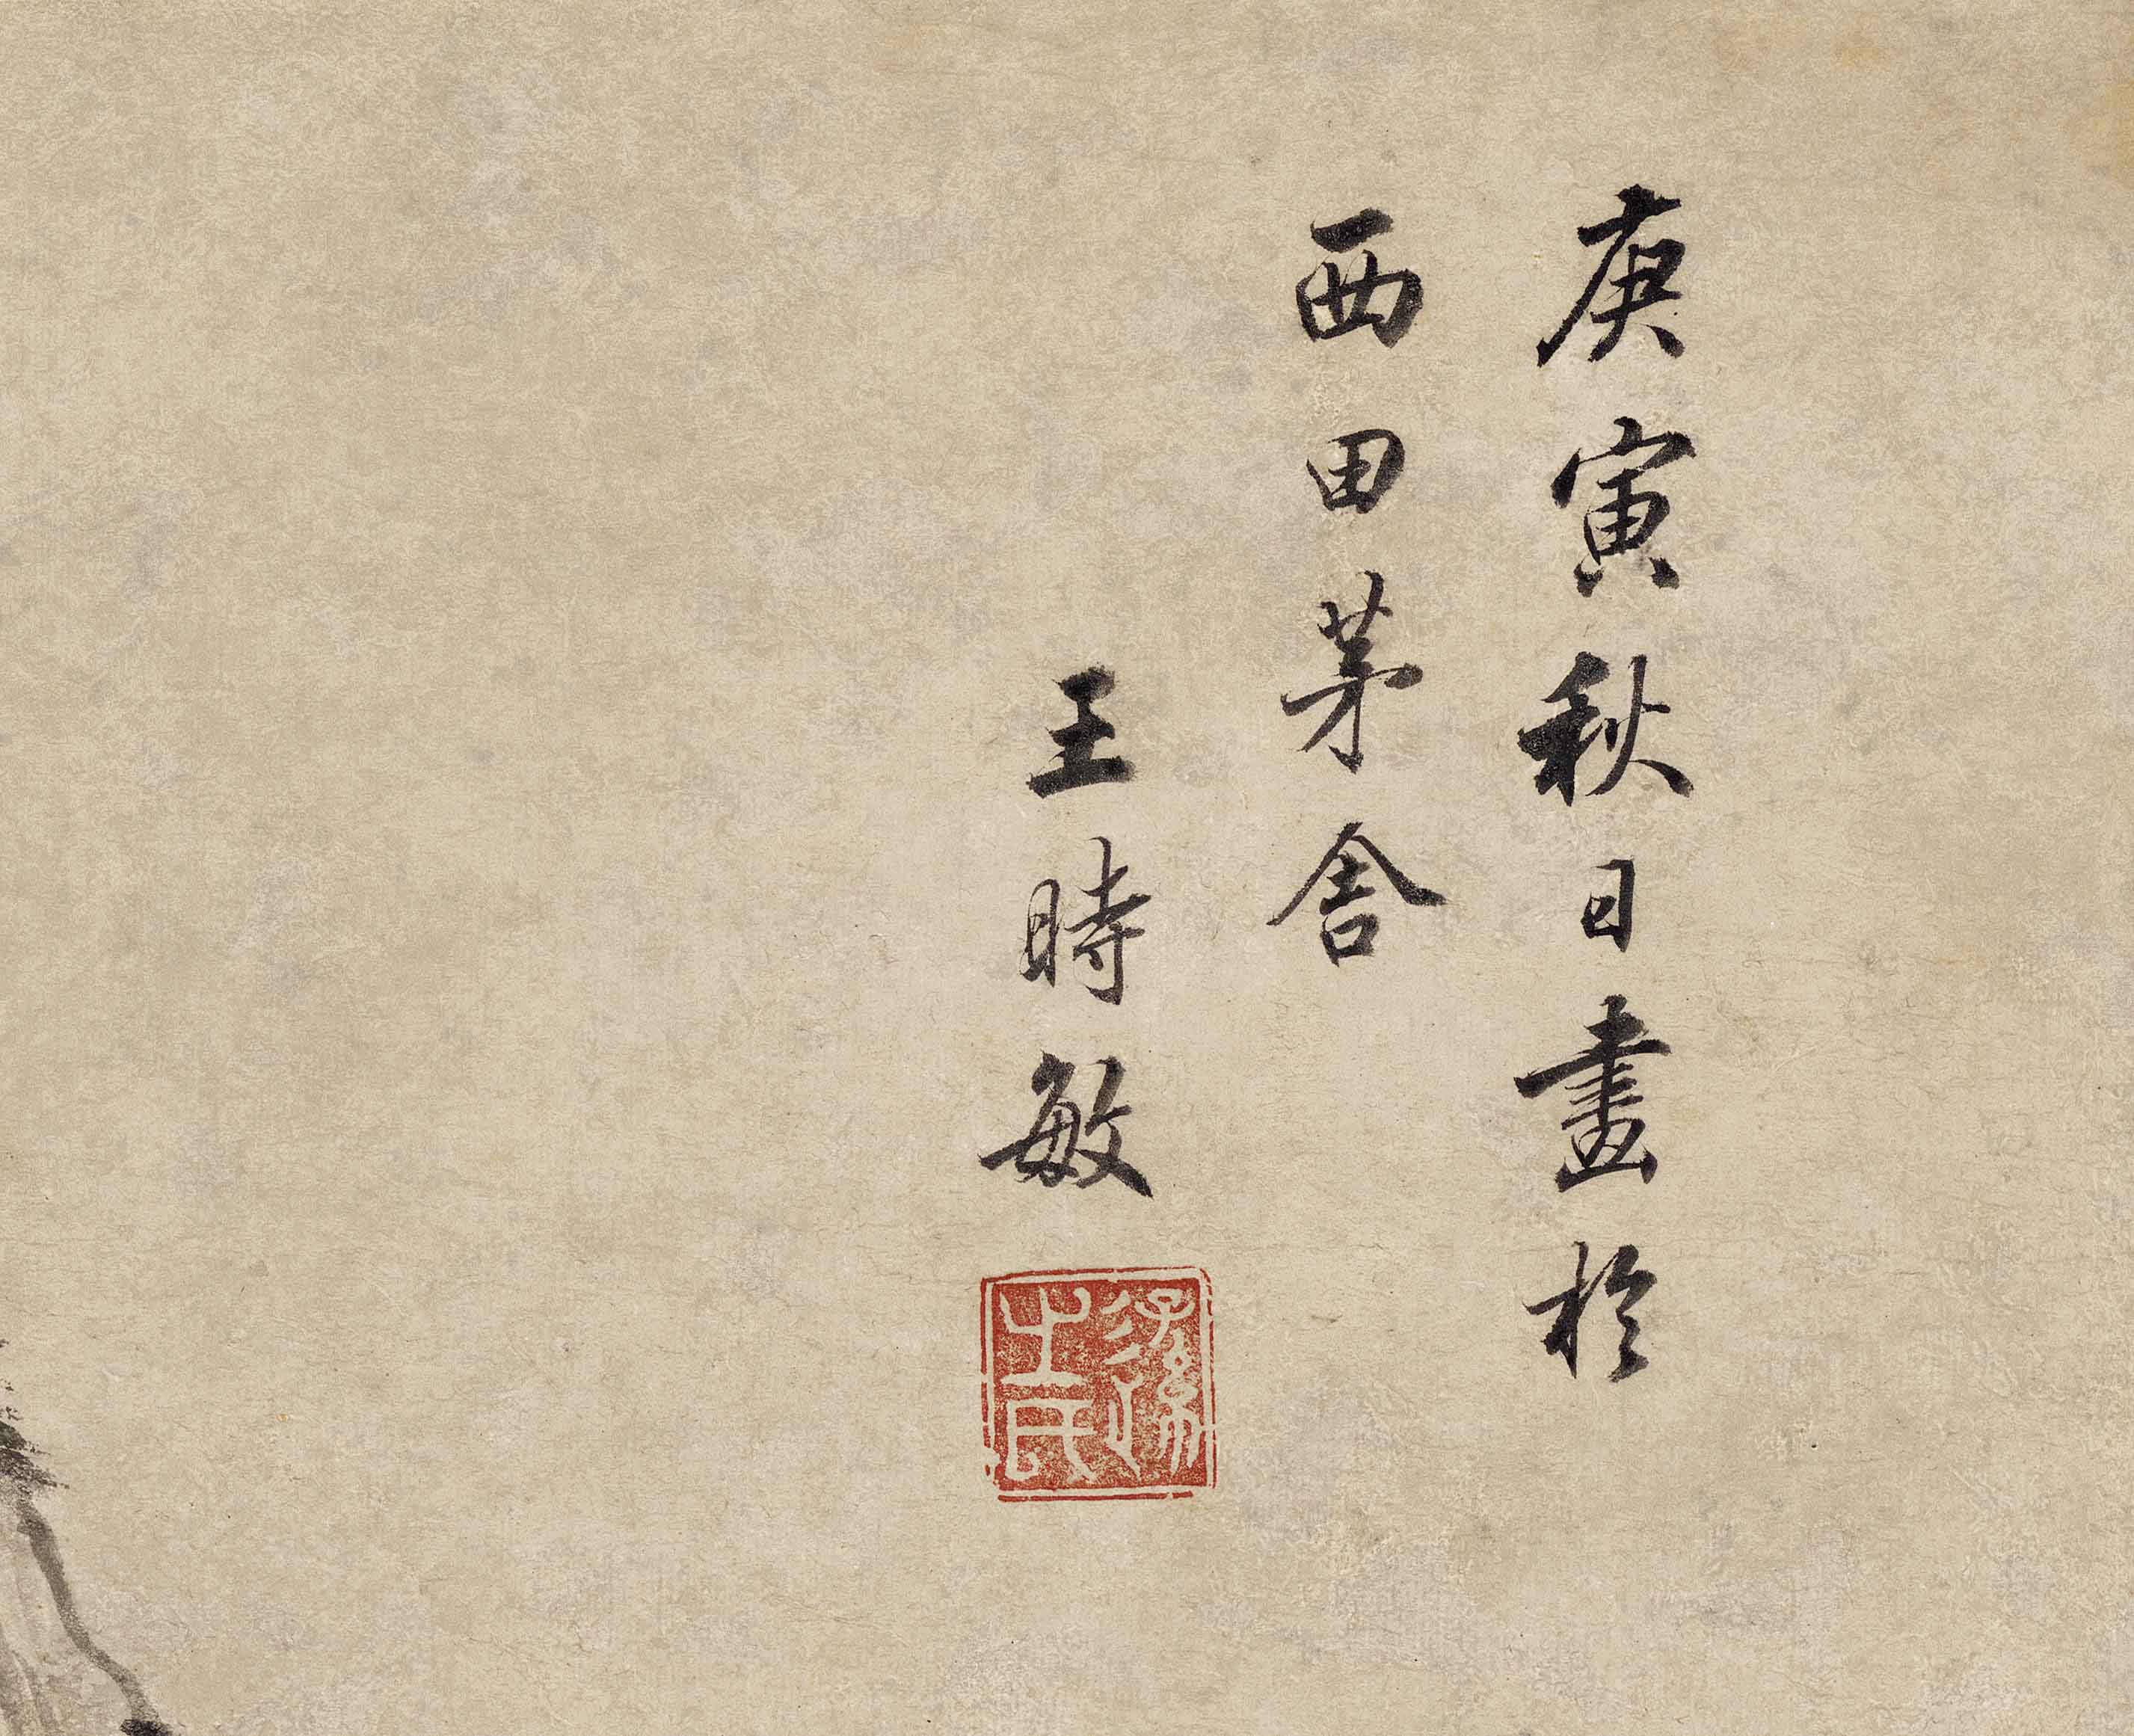 庚寅秋日畫於
西田茅舍
王時敏
遜之氏